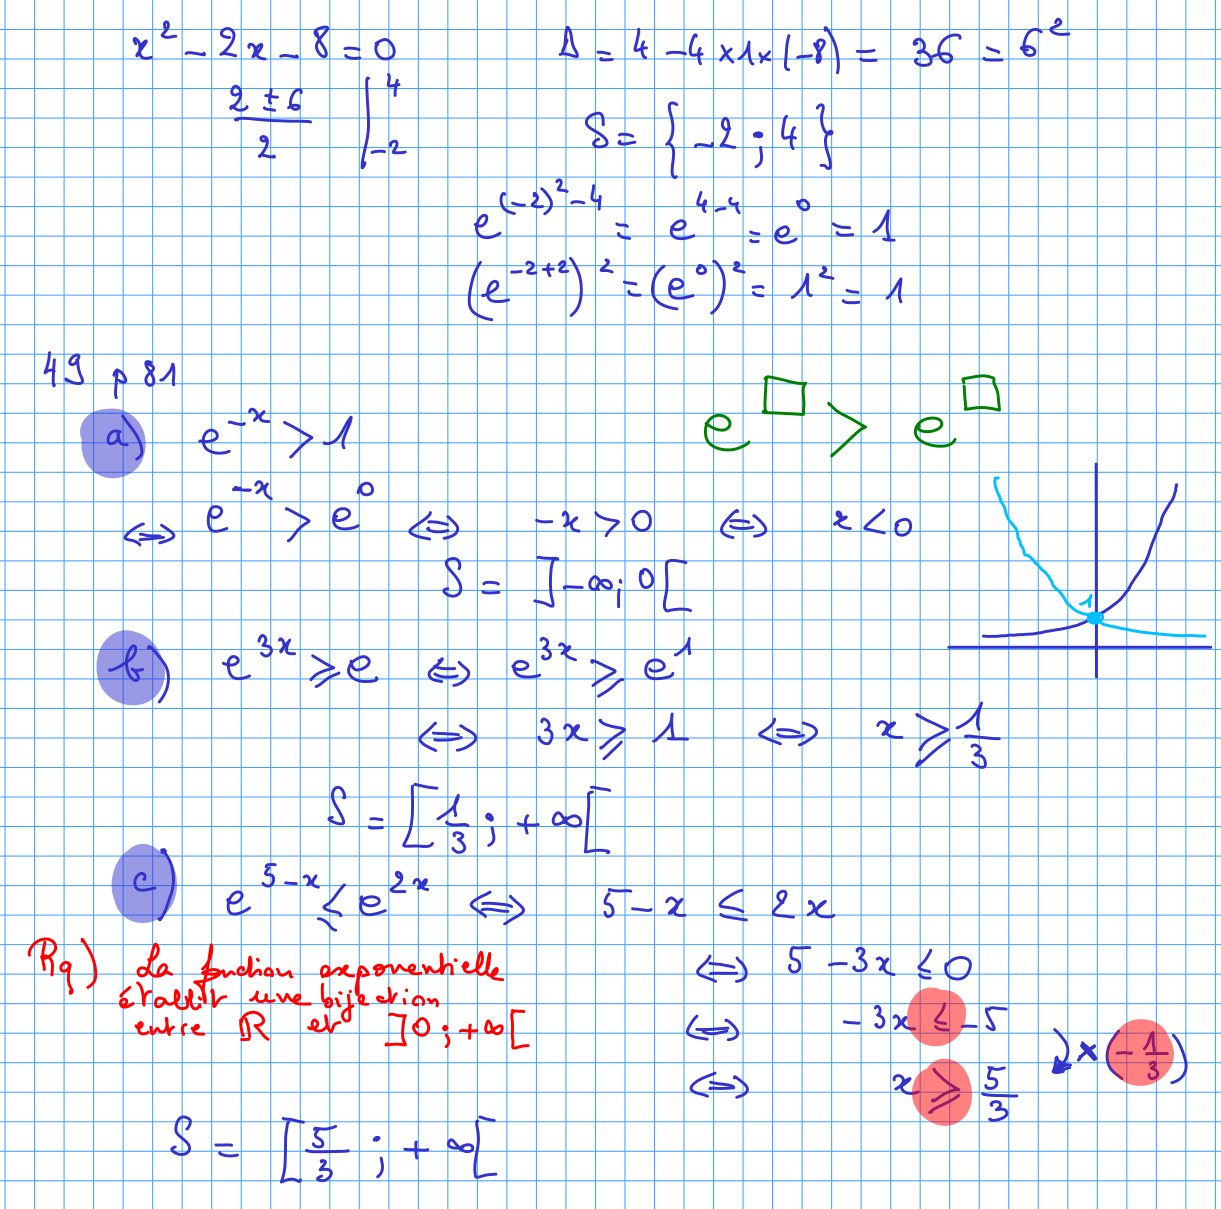 x² - 2x - 8 = 0    Δ = 4 - 4×1×(-8) = 36 = 6²
(2 ± 6)/2 | 4
-2
S = { -2 ; 4 }
e^((-2)²-4) = e^(4-4) = e^0 = 1
(e^(-2+2))² = (e^0)² = 1² = 1
49 p 81
a) e^(-x) > 1    e^□ > e^□
⇔ e^(-x) > e^0 ⇔ -x > 0 ⇔ x < 0
S = ]-∞; 0[
1
b) e^(3x) ⩾ e ⇔ e^(3x) ⩾ e^1
⇔ 3x ⩾ 1 ⇔ x ⩾ 1/3
S = [1/3 ; +∞[
c) e^(5-x) ≤ e^(2x) ⇔ 5 - x ≤ 2x
Rq) La fonction exponentielle
établit une bijection
entre ℝ et ]0 ; +∞[
⇔ 5 - 3x ≤ 0
⇔ -3x ≤ -5
× (-1/3)
⇔ x ⩾ 5/3
S = [5/3 ; +∞[